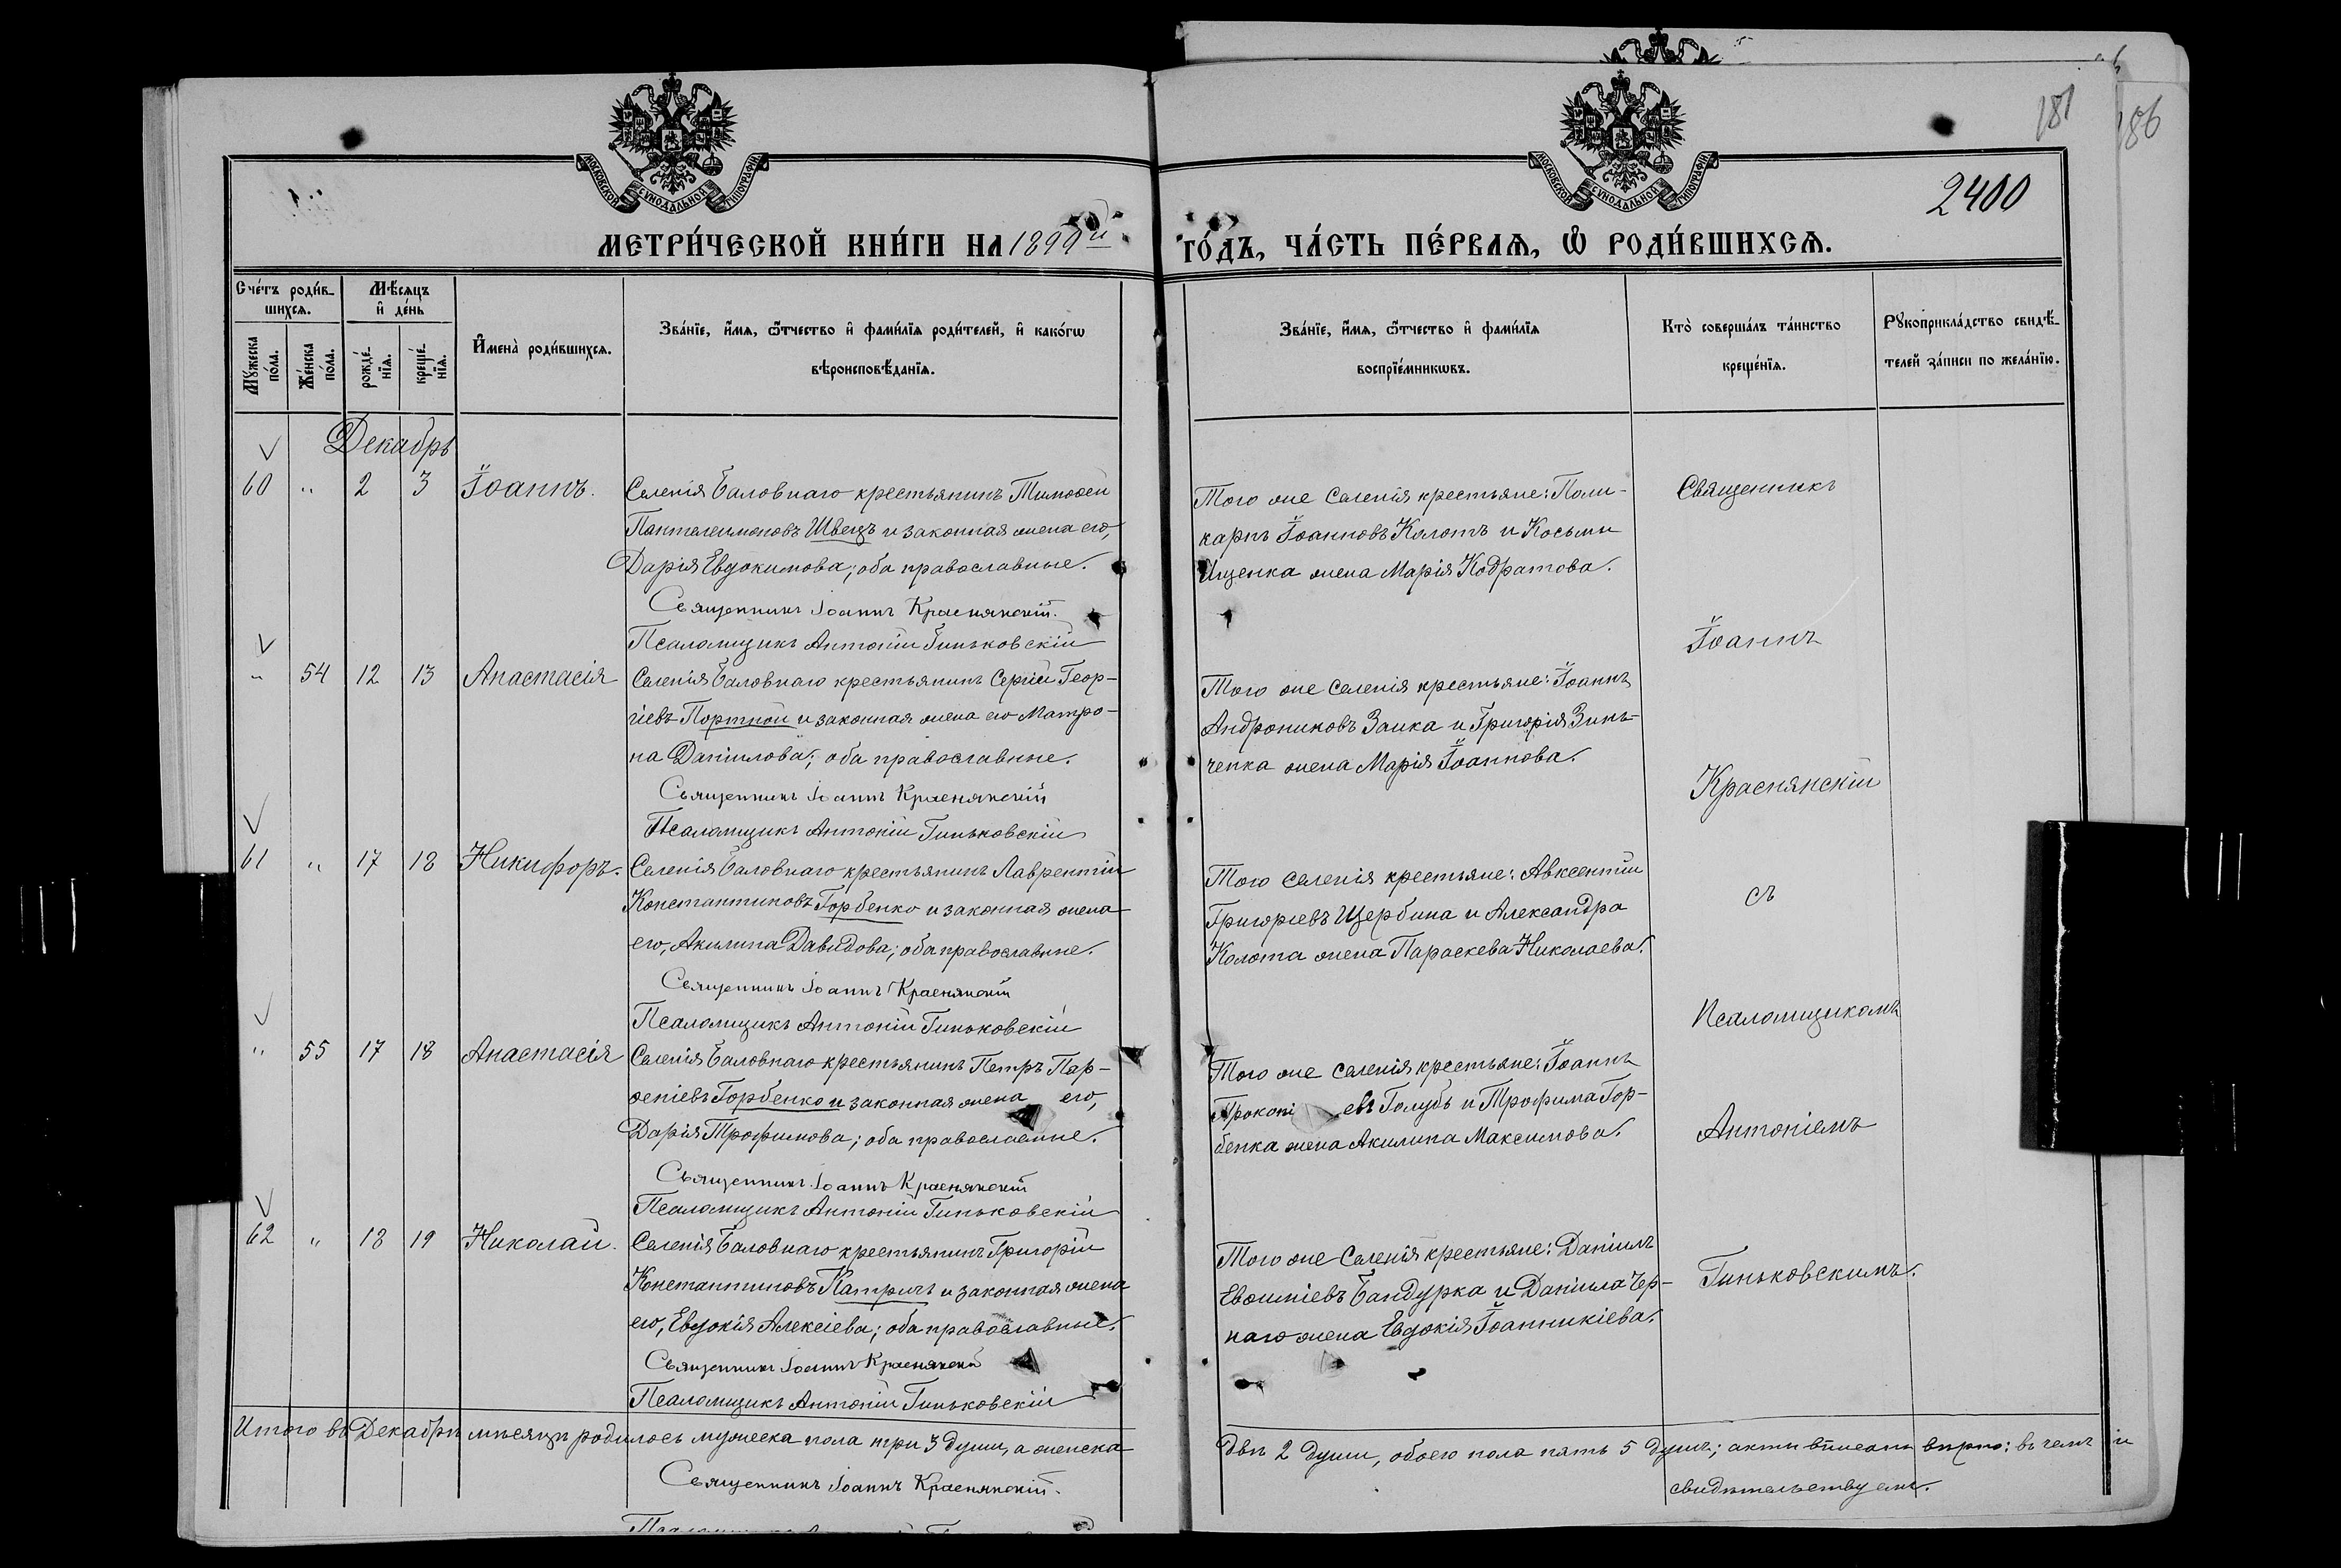 181
186
2400
МОСКОВСКОЙ СѴНОДАЛЬНОЙ ТИПОГРАФІИ
МОСКОВСКОЙ СѴНОДАЛЬНОЙ ТИПОГРАФІИ
МЕТРИ́ЧЕСКОЙ КНИ́ГИ НА 1899й
ГО́ДЪ, ЧА́СТЬ ПЕ́РВАѦ, Ѡ҆ РОДИ́ВШИХСѦ.
Сче́тъ роди́в-
шихсѧ.
Мѣ́сѧцъ
и҆ де́нь
Мꙋ́жеска
по́ла.
Же́нска
по́ла.
рожде́-
нїѧ.
креще́-
нїѧ.
И҆мена̀ роди́вшихсѧ.
Зва́нїе, и҆́мѧ, ѻ҆́тчество и҆ фами́лїѧ роди́телей, и҆ како́гѡ
вѣроисповѣ́данїѧ.
Зва́нїе, и҆́мѧ, ѻ҆́тчество и҆ фами́лїѧ
воспрїе́мникѡвъ.
Кто̀ соверша́лъ та́инство
креще́нїѧ.
Рꙋкоприкла́дство свидѣ́-
телей за́писи по жела́нїю.
Декабрь
60 " 2 3 Іоаннъ.
Селенія Баловнаго крестьянинъ Тимоѳей
Пантелеимоновъ Швецъ и законная жена его,
Дарія Евдокимова; оба православные.
Священникъ Іоаннъ Краснянскій.
Псаломщикъ Антоній Гиньковскій
Того же селенія крестьяне: Поли-
карпъ Іоанновъ Колотъ и Косьмы
Ищенка жена Марія Кодратова.
" 54 12 13 Анастасія
Селенія Баловнаго крестьянинъ Сергій Геор-
гіевъ Портной и законная жена его Матро-
на Даніилова; оба православные.
Священникъ Іоаннъ Краснянскій
Псаломщикъ Антоній Гиньковскій
Того же селенія крестьяне: Іоаннъ
Андрониковъ Заика и Григорія Зинь-
ченка жена Марія Іоаннова.
61 " 17 18 Никифоръ.
Селенія Баловнаго крестьянинъ Лаврентій
Константиновъ Горбенко и законная жена
его, Акилина Давидова; оба православные.
Священникъ Іоаннъ Краснянскій
Псаломщикъ Антоній Гиньковскій
Того селенія крестьяне: Авксентій
Григоріевъ Щербина и Александра
Колота жена Параскева Николаева.
" 55 17 18 Анастасія
Селенія Баловнаго крестьянинъ Петръ Пар-
ѳеніевъ Горбенко и законная жена его,
Дарія Трофимова; оба православные.
Священникъ Іоаннъ Краснянскій
Псаломщикъ Антоній Гиньковскій
Того же селенія крестьяне: Іоаннъ
Прокопіевъ Голубь и Трофима Гор-
бенка жена Акилина Максимова.
62 " 18 19 Николай.
Селенія Баловнаго крестьянинъ Григорій
Константиновъ Катричъ и законная жена
его, Евдокія Алексіева; оба православные.
Священникъ Іоаннъ Краснянскій
Псаломщикъ Антоній Гиньковскій
Того же селенія крестьяне: Даніилъ
Евѳиміевъ Бандурка и Даніила Чер-
наго жена Евдокія Іоанникіева.
Священникъ
Іоаннъ
Краснянскій
съ
Псаломщикомъ
Антоніемъ
Гиньковскимъ.
Итого въ Декабрѣ мѣсяцѣ родилось мужеска пола три 3 души, а женска
двѣ 2 души, обоего пола пять 5 душъ; акты вписаны вѣрно: въ чемъ и
свидѣтельствуемъ.
Священникъ Іоаннъ Краснянскій.